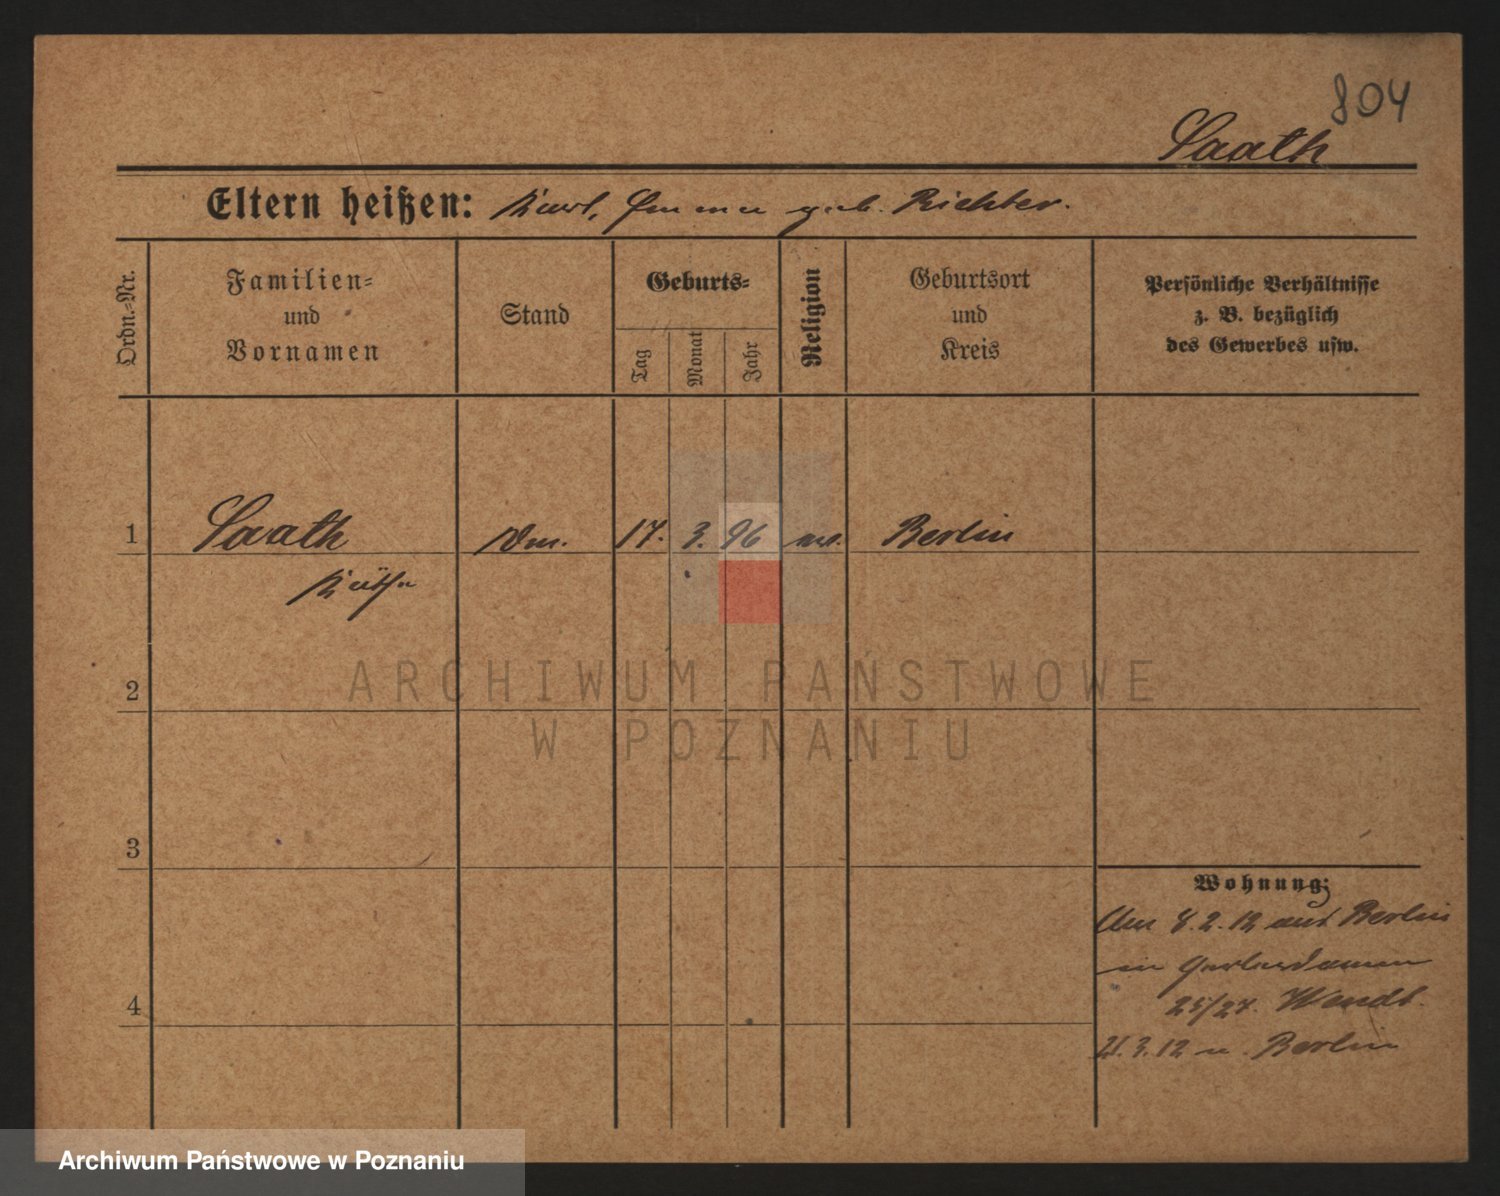 804
Saath
Eltern heißen: Karl, Emma geb. Richter.
Ordn.-Nr.
Familien-
und
Vornamen
Stand
Geburts-
Tag
Monat
Jahr
Religion
Geburtsort
und
Kreis
Persönliche Verhältnisse
z. B. bezüglich
des Gewerbes usw.
1 Saath 17. 3. 96 ev. Berlin
Käthe
2
3
4
Wohnung:
Am 8.2.12 aus Berlin
in
25/27. Wendt.
3.12 n. Berlin
ARCHIWUM PAŃSTWOWE
W POZNANIU
Archiwum Państwowe w Poznaniu